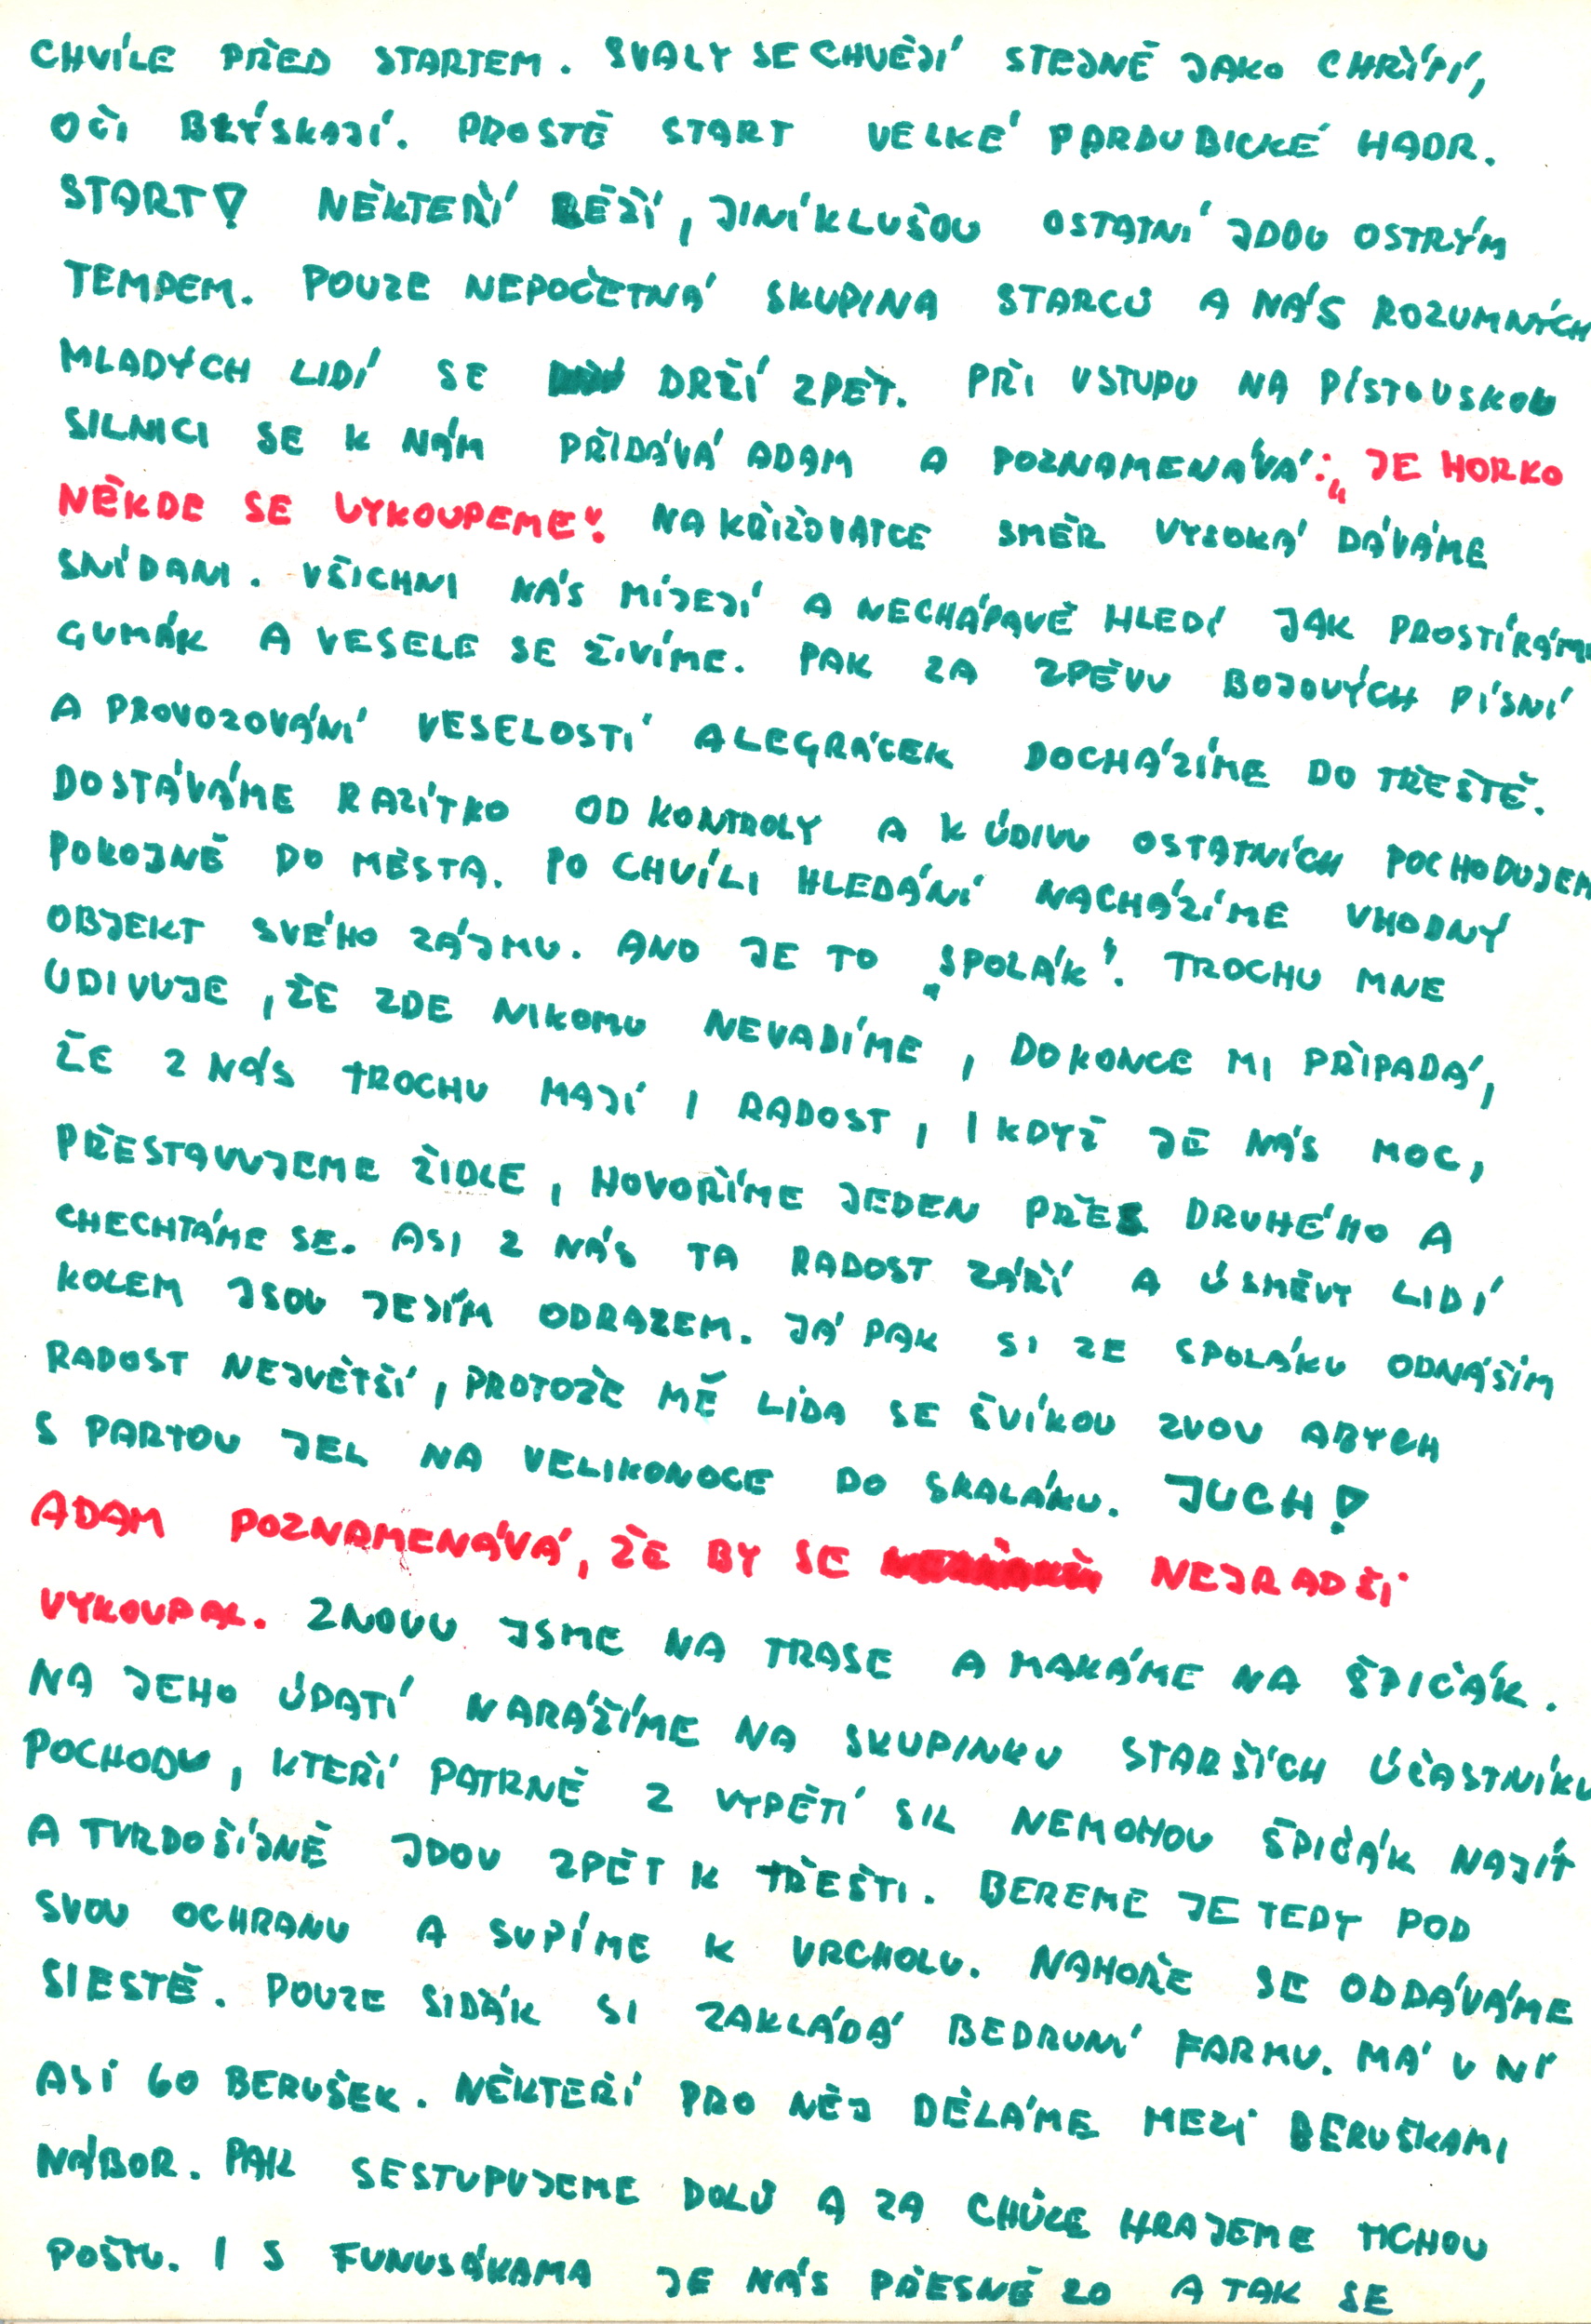 CHVÍLE PŘED STARTEM. SVALY SE CHVĚJÍ STEJNĚ JAKO CHŘÍPÍ,
OČI BLÝSKAJÍ. PROSTĚ START VELKÉ PARDUBICKÉ HADR.
START! NĚKTEŘÍ BĚŽÍ, JINÍ KLUŠOU OSTATNÍ JDOU OSTRÝM
TEMPEM. POUZE NEPOČETNÁ SKUPINA STARCŮ A NÁS ROZUMNÝCH
MLADÝCH LIDÍ SE DRŽÍ ZPĚT. PŘI VSTUPU NA PÍSTOVSKOU
SILNICI SE K NÁM PŘIDÁVÁ ADAM A POZNAMENÁVÁ: „JE HORKO
NĚKDE SE VYKOUPEME". NA KŘIŽOVATCE SMĚR VYSOKÁ DÁVÁME
SNÍDANI. VŠICHNI NÁS MÍJEJÍ A NECHÁPAVĚ HLEDÍ JAK PROSTÍRÁME
GUMÁK A VESELE SE ŽIVÍME. PAK ZA ZPĚVU BOJOVÝCH PÍSNÍ
A PROVOZOVÁNÍ VESELOSTÍ A LEGRÁCEK DOCHÁZÍME DO TŘEŠTĚ.
DOSTÁVÁME RAZÍTKO OD KONTROLY A K ÚDIVU OSTATNÍCH POCHODUJEM
POKOJNĚ DO MĚSTA. PO CHVÍLI HLEDÁNÍ NACHÁZÍME VHODNÝ
OBJEKT SVÉHO ZÁJMU. ANO JE TO „SPOLÁK". TROCHU MNE
UDIVUJE, ŽE ZDE NIKOMU NEVADÍME, DOKONCE MI PŘIPADÁ,
ŽE Z NÁS TROCHU MAJÍ I RADOST, I KDYŽ JE NÁS MOC,
PŘESTAVUJEME ŽIDLE, HOVOŘÍME JEDEN PŘES DRUHÉHO A
CHECHTÁME SE. ASI Z NÁS TA RADOST ZÁŘÍ A ÚSMĚVY LIDÍ
KOLEM JSOU JEJÍM ODRAZEM. JÁ PAK SI ZE SPOLÁKU ODNÁŠÍM
RADOST NEJVĚTŠÍ, PROTOŽE MĚ LÍDA SE ŠVÍKOU ZVOU ABYCH
S PARTOU JEL NA VELIKONOCE DO SKALÁKU. JUCH!
ADAM POZNAMENÁVÁ, ŽE BY SE NEJRADŠI
VYKOUPAL. ZNOVU JSME NA TRASE A MAKÁME NA ŠPIČÁK.
NA JEHO ÚPATÍ NARÁŽÍME NA SKUPINKU STARŠÍCH ÚČASTNÍKŮ
POCHODU, KTEŘÍ PATRNĚ Z VYPĚTÍ SIL NEMOHOU ŠPIČÁK NAJÍT
A TVRDOŠÍJNĚ JDOU ZPĚT K TŘEŠTI. BEREME JE TEDY POD
SVOU OCHRANU A SUPÍME K VRCHOLU. NAHOŘE SE ODDÁVÁME
SIESTĚ. POUZE SIDÁK SI ZAKLÁDÁ BEDRUNÍ FARMU. MÁ V NÍ
ASI 60 BERUŠEK. NĚKTEŘÍ PRO NĚJ DĚLÁME MEZI BERUŠKAMI
NÁBOR. PAK SESTUPUJEME DOLŮ A ZA CHŮZE HRAJEME TICHOU
POŠTU. I S FUNUSÁKAMA JE NÁS PŘESNĚ 20 A TAK SE